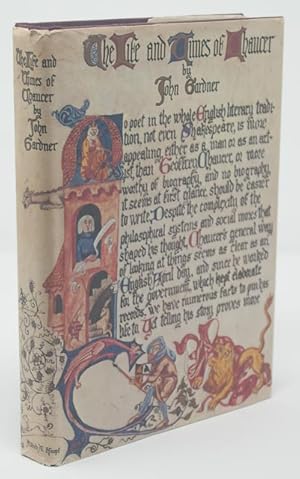 The Life and
Times of
Chaucer
by
John
Gardner
The Life and Times of Chaucer
by
John Gardner
No poet in the whole English literary tradi-
tion, not even Shakespeare, is more
appealing either as a man or as an art-
ist than Geoffrey Chaucer, or more
worthy of biography, and no biography,
it seems at first glance, should be easier
to write. Despite the complexity of the
philosophical systems and social mores that
shaped his thought, Chaucer's general way
of looking at things seems as clear as an
English April day, and since he worked
for the government, which kept elaborate
records, we have numerous facts to pin his
life to. Yet telling his story proves more